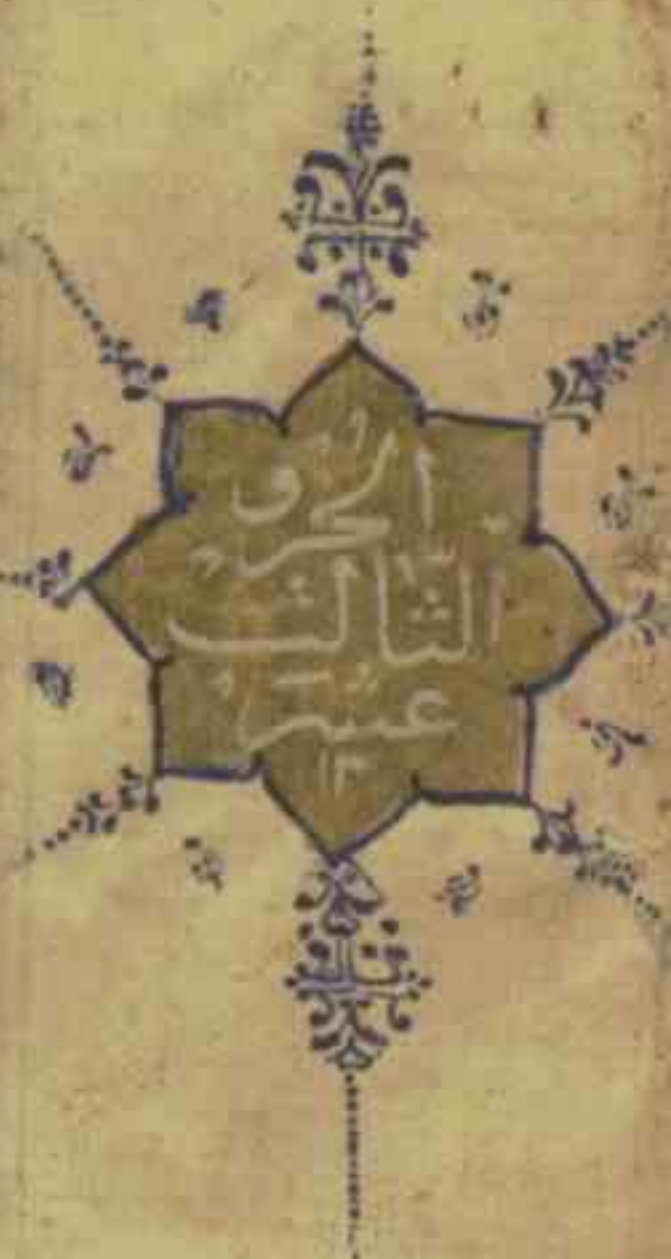 الجزو
الثالث
عشر
١٣